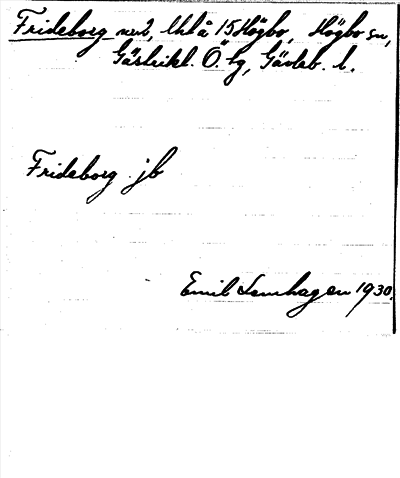 Frideborg nr 2, Utl å 15 Högbo, Högbo sn,
Gästrikl. Ö. tg, Gävleb. l.
Frideborg jb
Emil Lennhagen 1930.